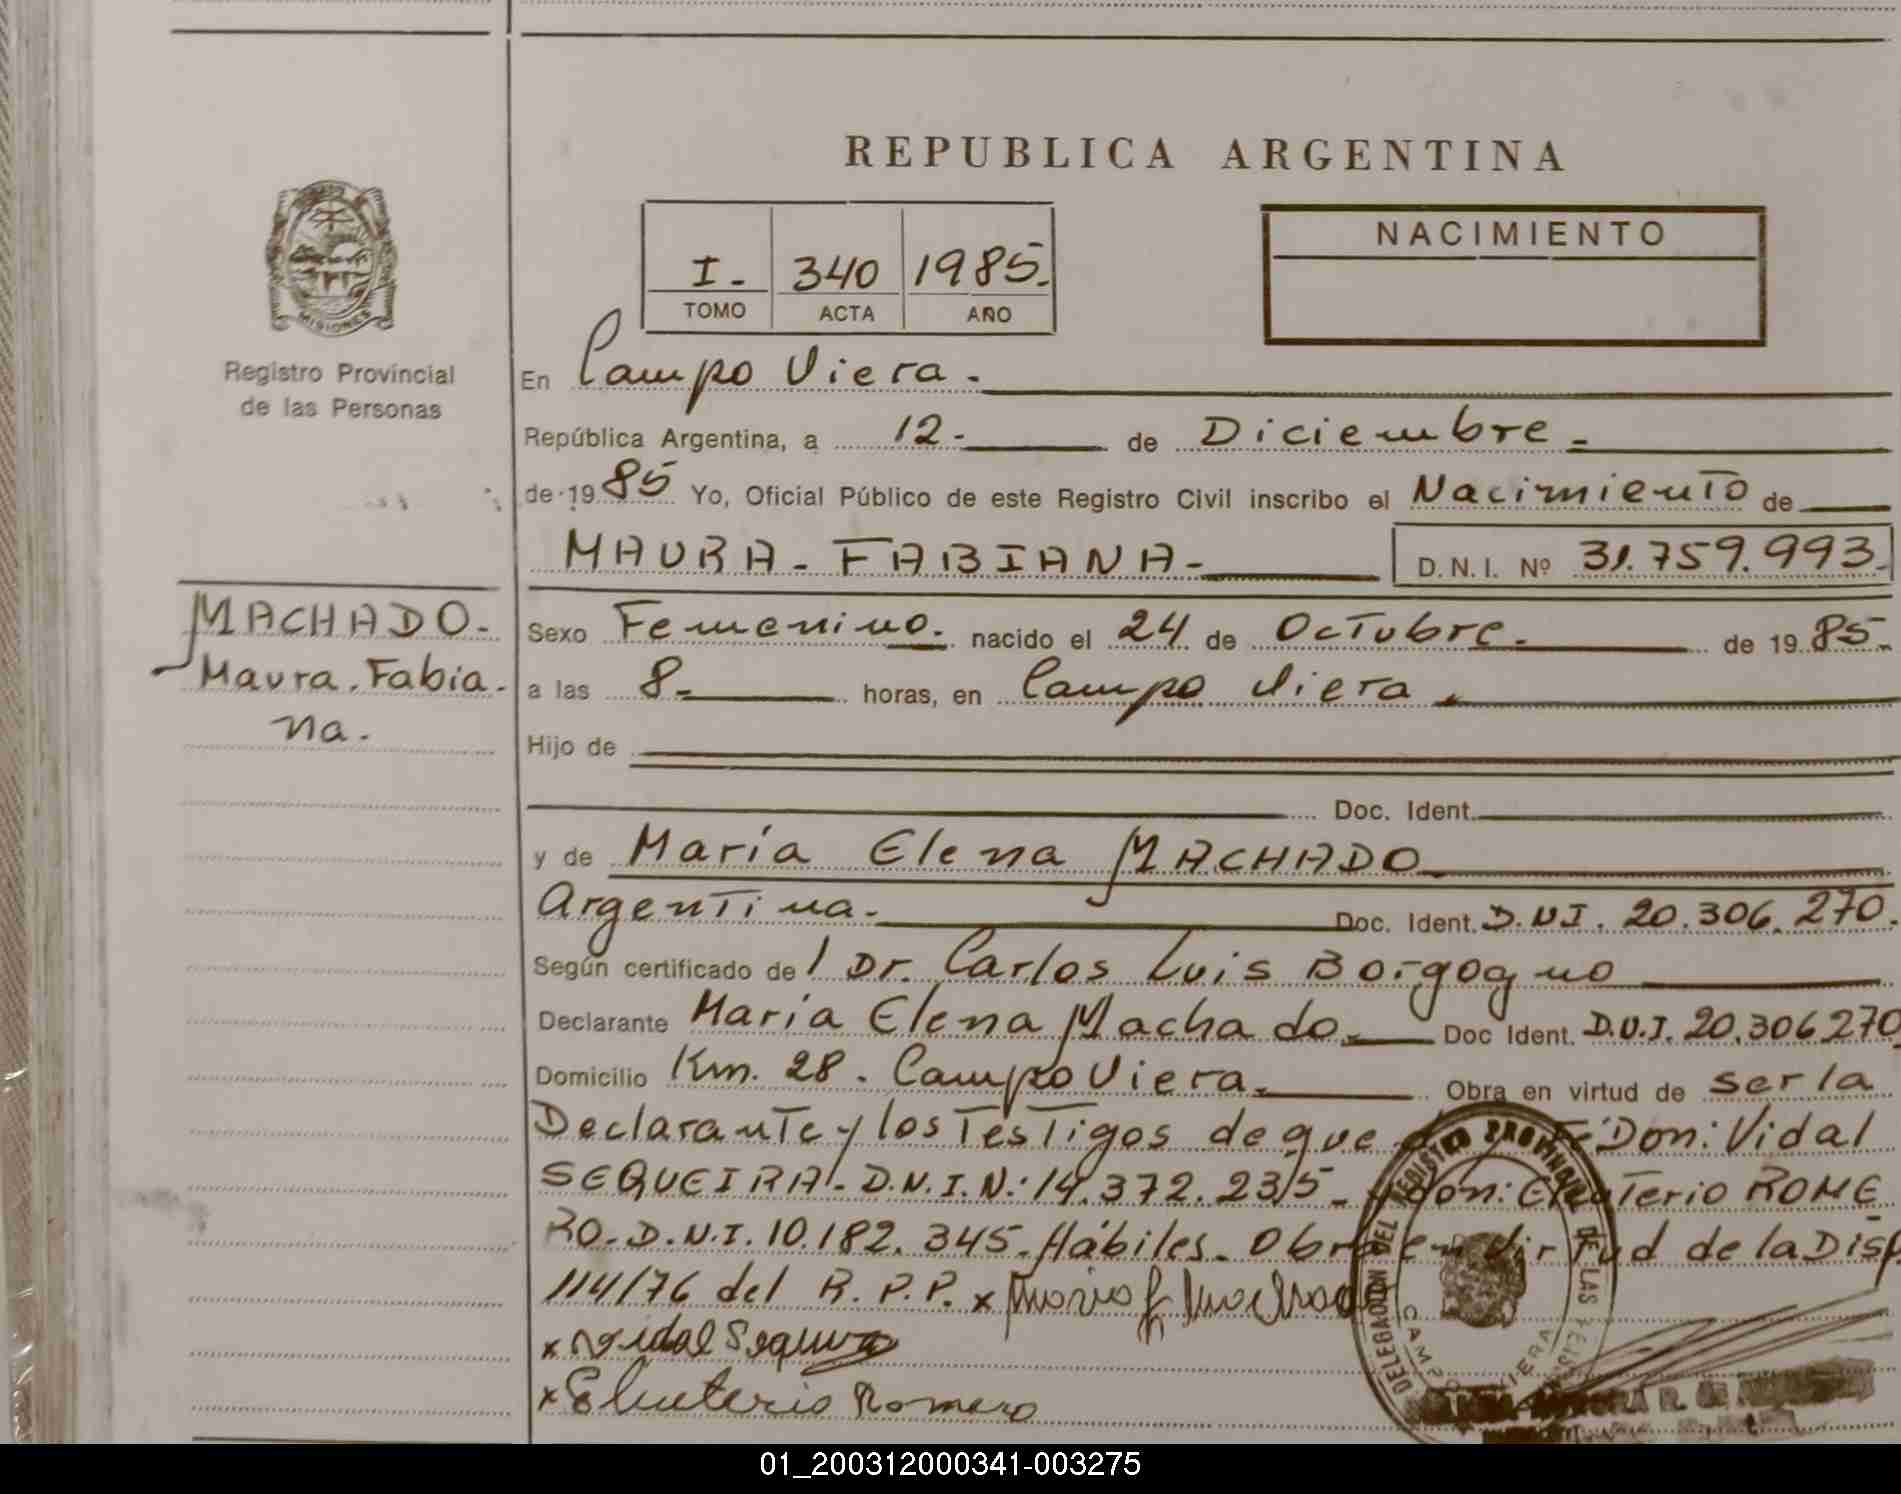 REPUBLICA ARGENTINA
NACIMIENTO
I- 340 1985-
TOMO ACTA AÑO
MISIONES
Registro Provincial
de las Personas
En Campo Viera.
República Argentina, a 12- de Diciembre-
de 1985 Yo, Oficial Público de este Registro Civil inscribo el Nacimiento de
MAURA-FABIANA- D.N.I. Nº 31.759.993-
MACHADO-
Maura.Fabia-
na.
Sexo Femenino. nacido el 24 de Octubre- de 1985-
a las 8- horas, en Campo Viera.
Hijo de
Doc. Ident.
y de María Elena MACHADO
Argentina- Doc. Ident. D.N.I. 20.306.270.
Según certificado de l Dr. Carlos Luis Borgogno
Declarante María Elena Machado- Doc Ident. D.N.I. 20.306270
Domicilio Km. 28. Campo Viera- Obra en virtud de ser la
Declarante y los Testigos de que Fé Don: Vidal
SEQUEIRA-D.N.I.N.:14.372.235- don: Eleuterio ROME
RO-D.N.I.10.182.345-Hábiles- Obra en virtud de la Disp.
114/76 del R.P.P. x
x Vidal Sequeira
x Eleuterio Romero
DELEGACION DEL REGISTRO PROVINCIAL DE LAS
CAMPO VIERA
01_200312000341-003275